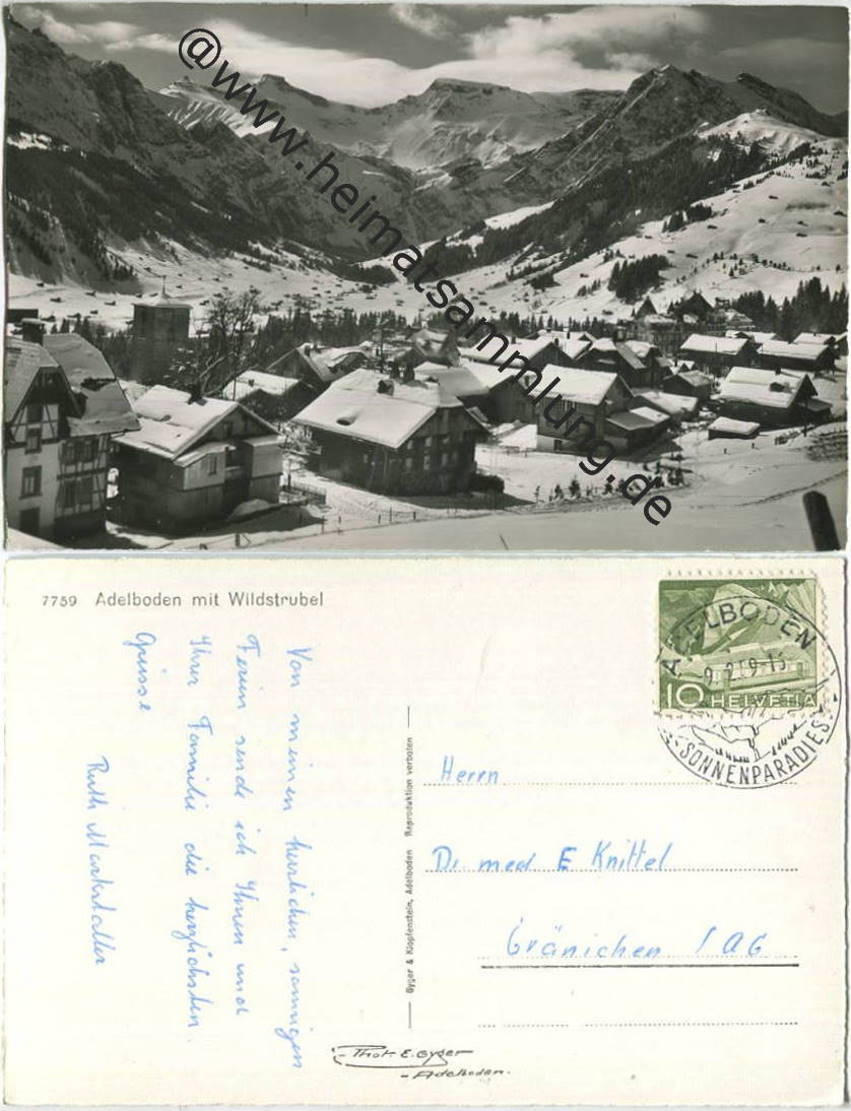 @www.heimatsammlung.de
7759 Adelboden mit Wildstrubel
Von meinen herrlichen, sonnigen
Ferien sende ich Ihnen und
Ihrer Familie die herzlichsten
Grüsse
Ruth Markstaller
Gyger & Klopfenstein, Adelboden Reproduktion verboten
ADELBODEN
9.2.59-15
SONNENPARADIES
10 HELVETIA
Herrn
Dr. med E Knittel
Gränichen / AG
Phot. E. Gyger
- Adelboden.